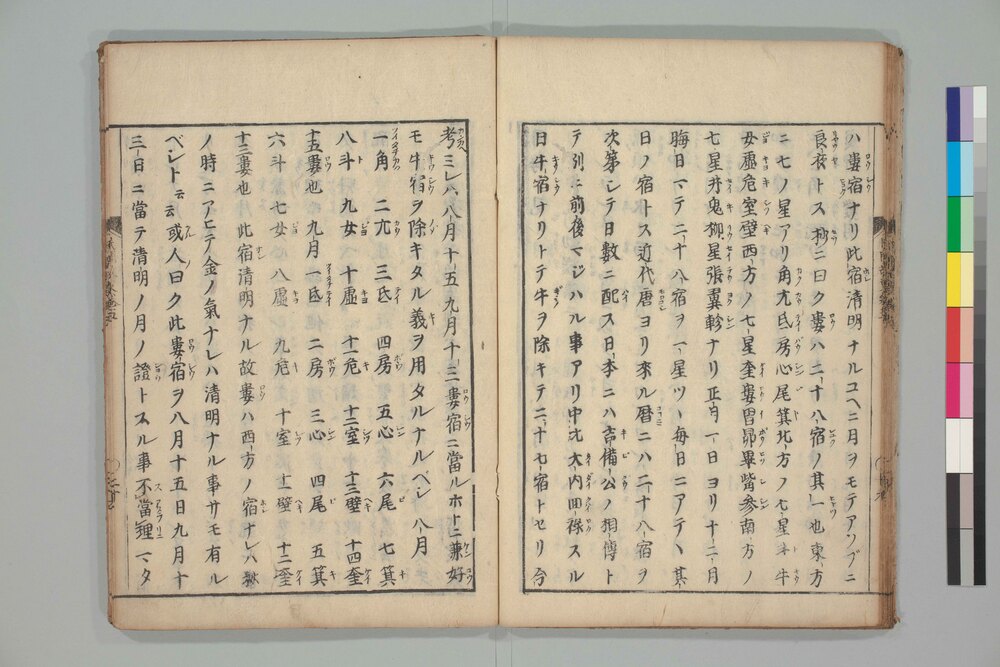 ハ婁宿ナリ此宿清明ナルユヘニ月ヲモテアソブニ
良夜トス抄ニ曰ク婁ハ二十八宿ノ其一也東方
ニ七ノ星アリ角亢氐房心尾箕北方ノ七星斗牛
女虚危室壁西方ノ七星奎婁胃昴畢觜参南方ノ
七星井鬼柳星張翼軫ナリ正月一日ヨリ十二月
晦日マテ二十八宿ヲ一星ツヽ毎日ニアテヽ其
日ノ宿トス近代唐ヨリ來ル暦ニハ二十八宿ヲ
次第シテ日數ニ配ス日本ニハ吉備公ノ相傳ト
テ列ニ前後マジハル事アリ中尤大内ニ禄スル
日牛宿ナリトテ牛ヲ除キテ二十七宿トセリ今
考ミレハ八月十五九月十三婁宿ニ當ルホトニ兼好
モ牛宿ヲ除キタル義ヲ用タルナルベシ 八月
一角 二亢 三氐 四房 五心 六尾 七箕
八斗 九女 十虚 十一危 十二室 十三壁 十四奎
十五婁也 九月一氐 二房 三心 四尾 五箕
六斗 七女 八虚 九危 十室 十一壁 十二奎
十三婁也 此宿清明ナル故婁ハ西方ノ宿ナレハ秋
ノ時ニアヒテ金ノ氣ナレハ清明ナル事サモ有ル
ベシト云云或人曰ク此婁宿ヲ八月十五日九月十
三日ニ當テ清明ノ月ノ證トスル事不當理マタ